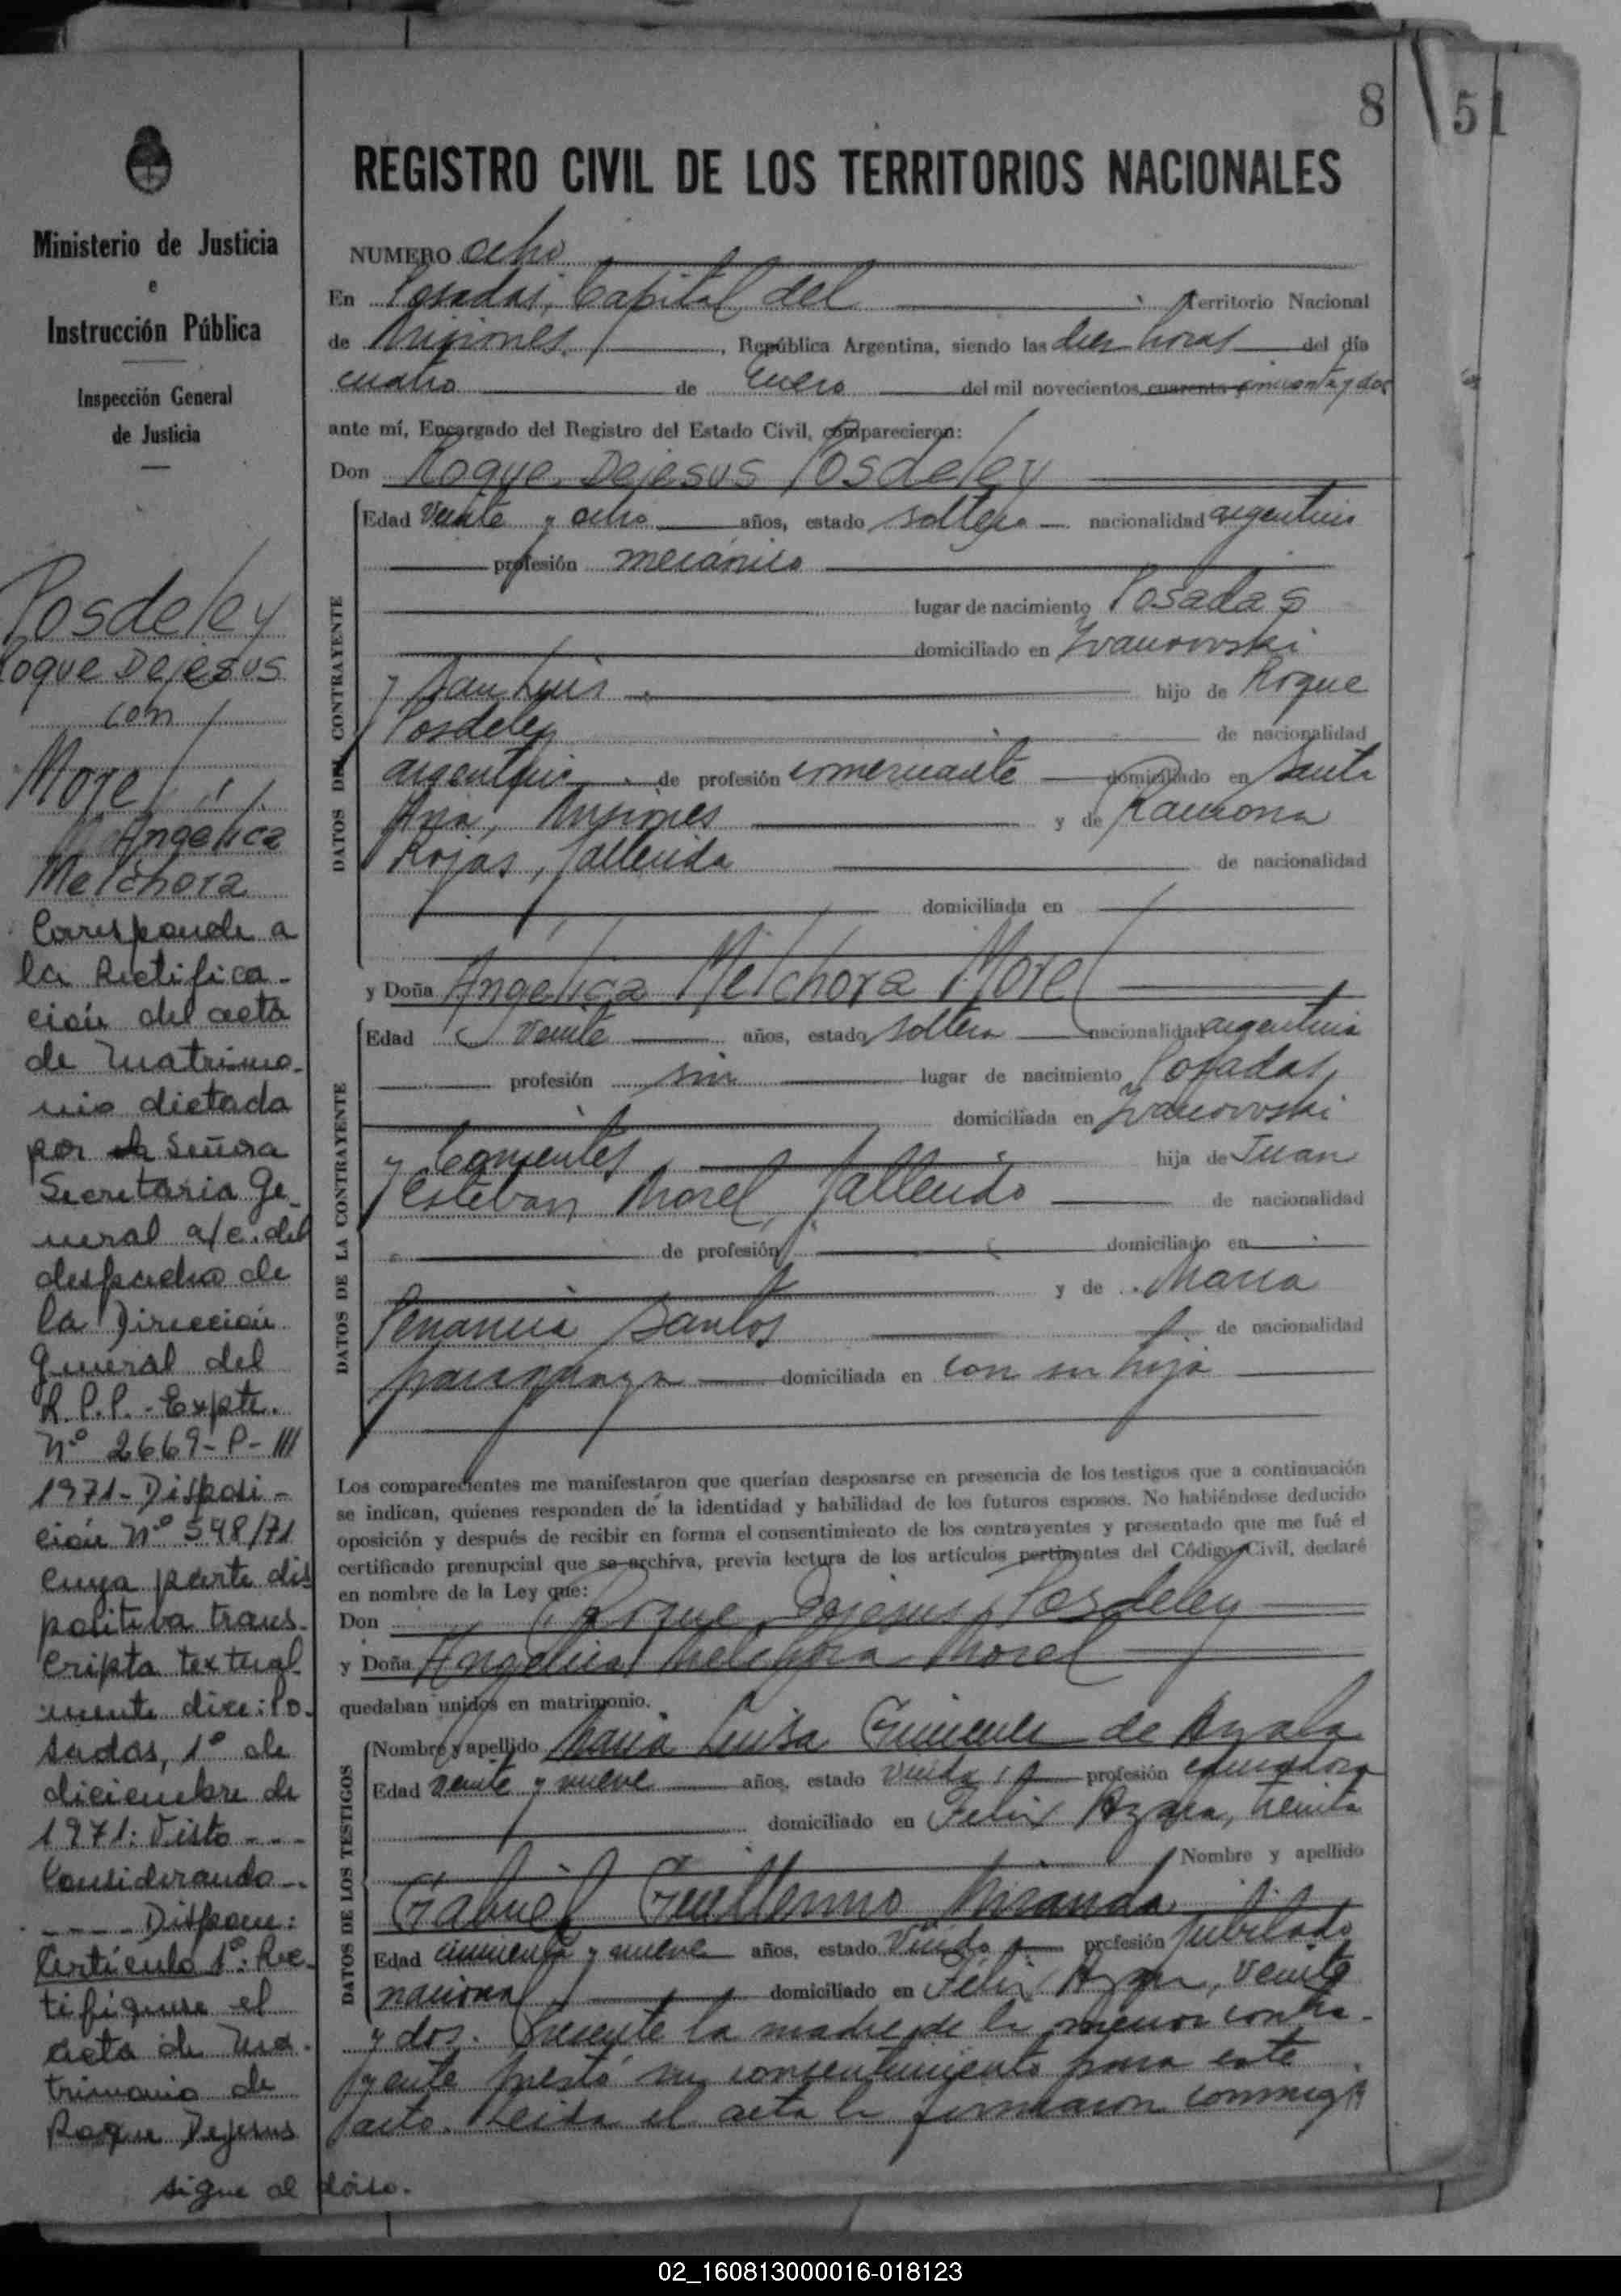 8
51
REGISTRO CIVIL DE LOS TERRITORIOS NACIONALES
Ministerio de Justicia
e
Instrucción Pública
Inspección General
de Justicia
Posdeley
Roque Dejesus
con
Morel
Angelica
Melchora
Corresponde a
la Rectifica-
ción del acta
de Matrimo-
nio dictada
por la Señora
Secretaria Ge-
neral a/c. del
despacho de
la Dirección
General del
R.P.P. - Expte.
Nº 2669-P-III
1971- Disposi-
ción Nº 548/71
cuya parte dis
positiva trans-
cripta textual-
mente dice: Po-
sadas, 1º de
diciembre de
1971: Visto - - -
Considerando -.
- - - - Dispone:
Artículo 1º: Rec-
tifíquese el
acta de Ma-
trimonio de
Roque Dejesus
sigue al dorso.
NUMERO ocho
En Posadas, Capital del Territorio Nacional
de Misiones, República Argentina, siendo las diez horas del día
cuatro de Enero del mil novecientos cuarenta y cincuenta y dos
ante mí, Encargado del Registro del Estado Civil, comparecieron:
Don Roque Dejesus Posdeley
DATOS DEL CONTRAYENTE
Edad Veinte y ocho años, estado soltero nacionalidad argentino
profesión mecánico
lugar de nacimiento Posadas
domiciliado en Ivanowski
y San Luis hijo de Roque
Posdeley de nacionalidad
argentino de profesión comerciante domiciliado en Santa
Ana, Misiones y de Ramona
Rojas, fallecida de nacionalidad
domiciliada en
y Doña Angelica Melchora Morel
DATOS DE LA CONTRAYENTE
Edad Veinte años, estado soltera nacionalidad argentina
profesión sin lugar de nacimiento Posadas,
domiciliada en Ivanowski
y Corrientes hija de Juan
Esteban Morel, fallecido de nacionalidad
de profesión domiciliado en
y de Maria
Venancia Santos de nacionalidad
paraguaya domiciliada en con su hija
Los comparecientes me manifestaron que querían desposarse en presencia de los testigos que a continuación
se indican, quienes responden de la identidad y habilidad de los futuros esposos. No habiéndose deducido
oposición y después de recibir en forma el consentimiento de los contrayentes y presentado que me fué el
certificado prenupcial que se archiva, previa lectura de los artículos pertinentes del Código Civil, declaré
en nombre de la Ley que:
Don Roque Dejesus Posdeley
y Doña Angelica Melchora Morel
quedaban unidos en matrimonio.
DATOS DE LOS TESTIGOS
Nombre y apellido Maria Luisa de Ayala
Edad veinte y nueve años, estado viuda profesión
domiciliado en Felix Azara, treinta
Nombre y apellido
Gabriel Guillermo Miranda
Edad cincuenta y nueve años, estado Viudo profesión jubilado
nacional domiciliado en Félix Azara, veinte
y dos. Presente la madre de la menor contra-
yente prestó su consentimiento para este
acto. Leída el acta la firmaron conmigo
02_160813000016-018123